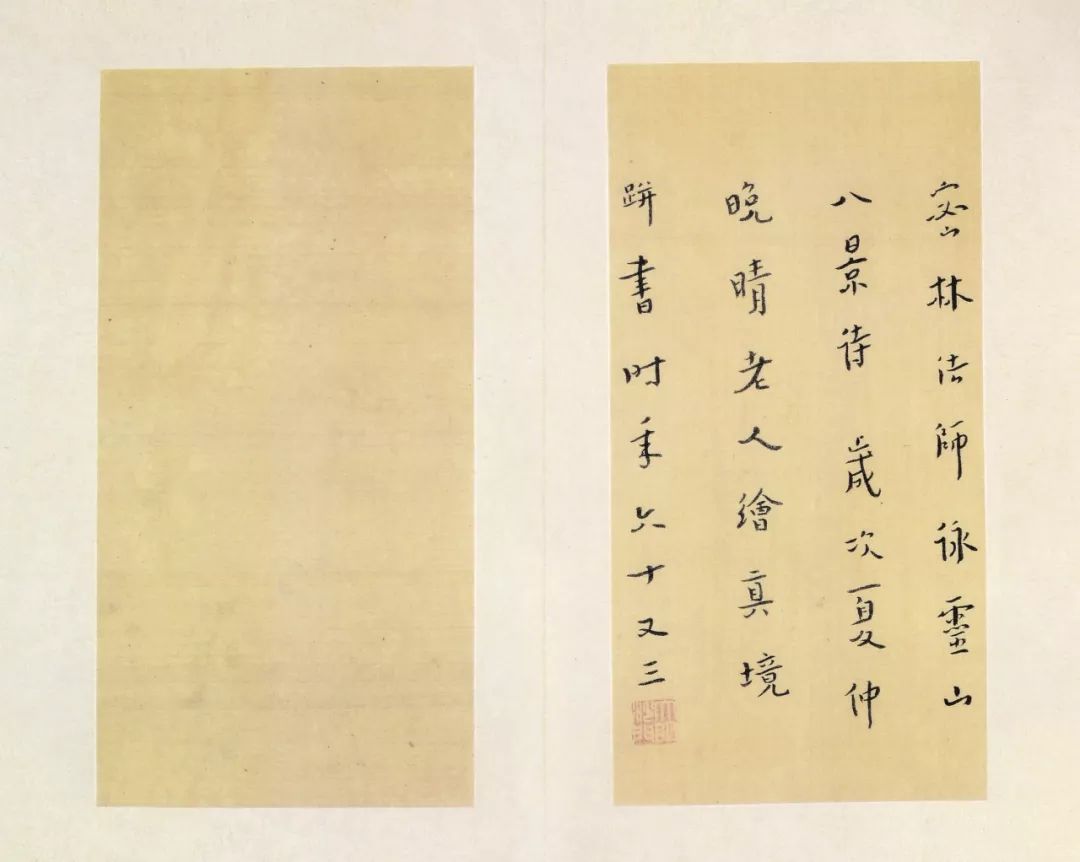 密林法師詠靈山
八景待 歲次夏仲
晚晴老人繪真境
跰書時年六十又三